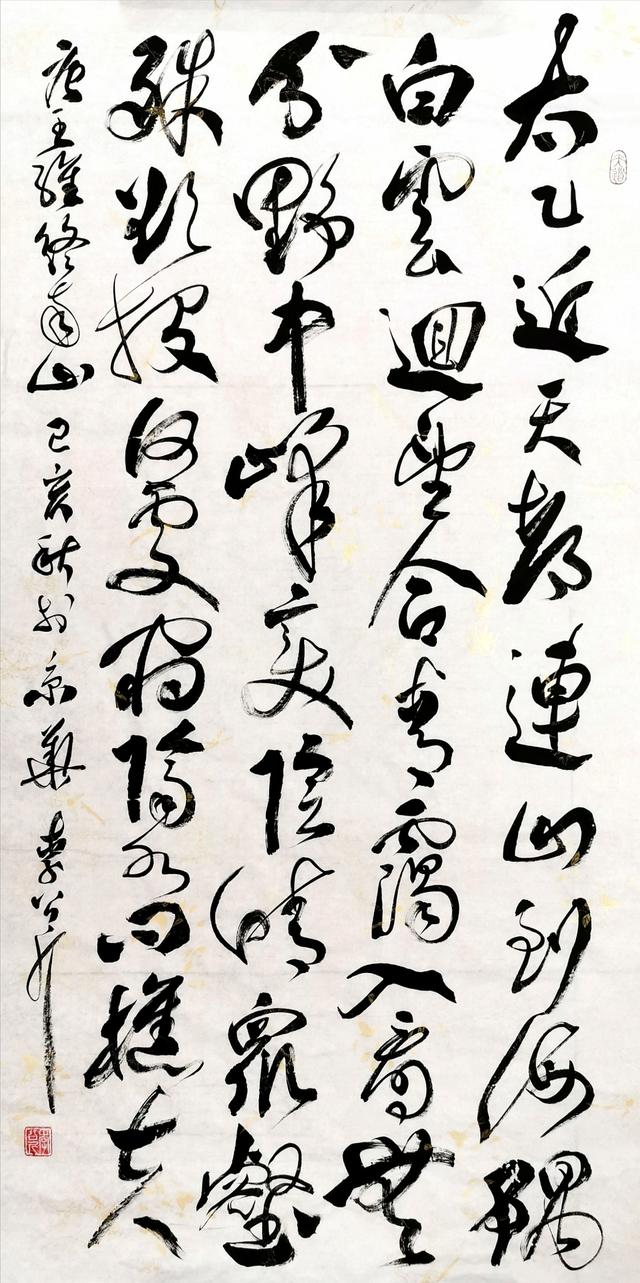 太乙近天都連山到海隅
白雲迴望合青靄入看無
分野中峰變陰晴眾壑
殊欲投何處宿隔水問樵夫
唐王維終南山 己亥秋於京華 李公